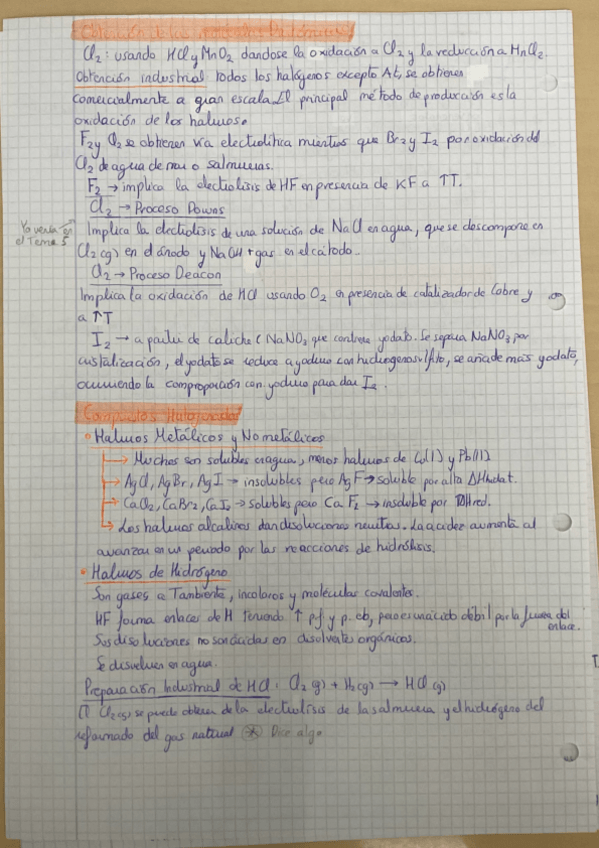 Obtención de las
Cl₂: usando HCl y MnO₂ dandose la oxidación a Cl₂ y la reducción a MnCl₂.
Obtención industrial Todos los halógenos excepto At, se obtienen
comercialmente a gran escala. El principal método de producción es la
oxidación de los haluros.
F₂ y Cl₂ se obtienen vía electrolítica mientras que Br₂ y I₂ por oxidación del
Cl₂ de agua de mar o salmueras.
F₂ → implica la electrolisis de HF en presencia de KF a ↑T.
Cl₂ → Proceso Downs
Ya vería en
el Tema 5
Implica la electrolisis de una solución de NaCl en agua, que se descompone en
Cl₂(g) en el ánodo y NaOH + gas en el cátodo.
Cl₂ → Proceso Deacon
Implica la oxidación de HCl usando O₂ en presencia de catalizador de Cobre y
a ↑T
I₂ → a partir de caliche (NaNO₃ que contiene yodato. Se separa NaNO₃ por
cristalización, el yodato se reduce a yoduro con hidrogenosulfito, se añade más yodato,
ocurriendo la comproporción con yoduro para dar I₂.
Compuestos Halogenados
• Haluros Metálicos y No metálicos
→ Muchos son solubles en agua, menos haluros de Cu(I) y Pb(II)
→ AgCl, AgBr, AgI → insolubles pero AgF → soluble por alta ΔHhidrat.
→ CaCl₂, CaBr₂, CaI₂ → solubles pero CaF₂ → insoluble por ↑ΔHred.
→ Los haluros alcalinos dan disoluciones neutras. La acidez aumenta al
avanzar en un periodo por las reacciones de hidrólisis.
• Haluros de Hidrógeno
Son gases a Tambiente, incoloros y molecular covalentes.
HF forma enlaces de H teniendo ↑ p.f y p. eb, pero es un ácido débil por la fuerza del
enlace.
Sus disoluciones no son ácidas en disolventes orgánicos.
Se disuelven en agua.
Preparación Industrial de HCl: Cl₂(g) + H₂(g) → HCl(g)
El Cl₂(g) se puede obtener de la electrolisis de la salmuera y el hidrógeno del
reformado del gas natural ⊛ Dice algo